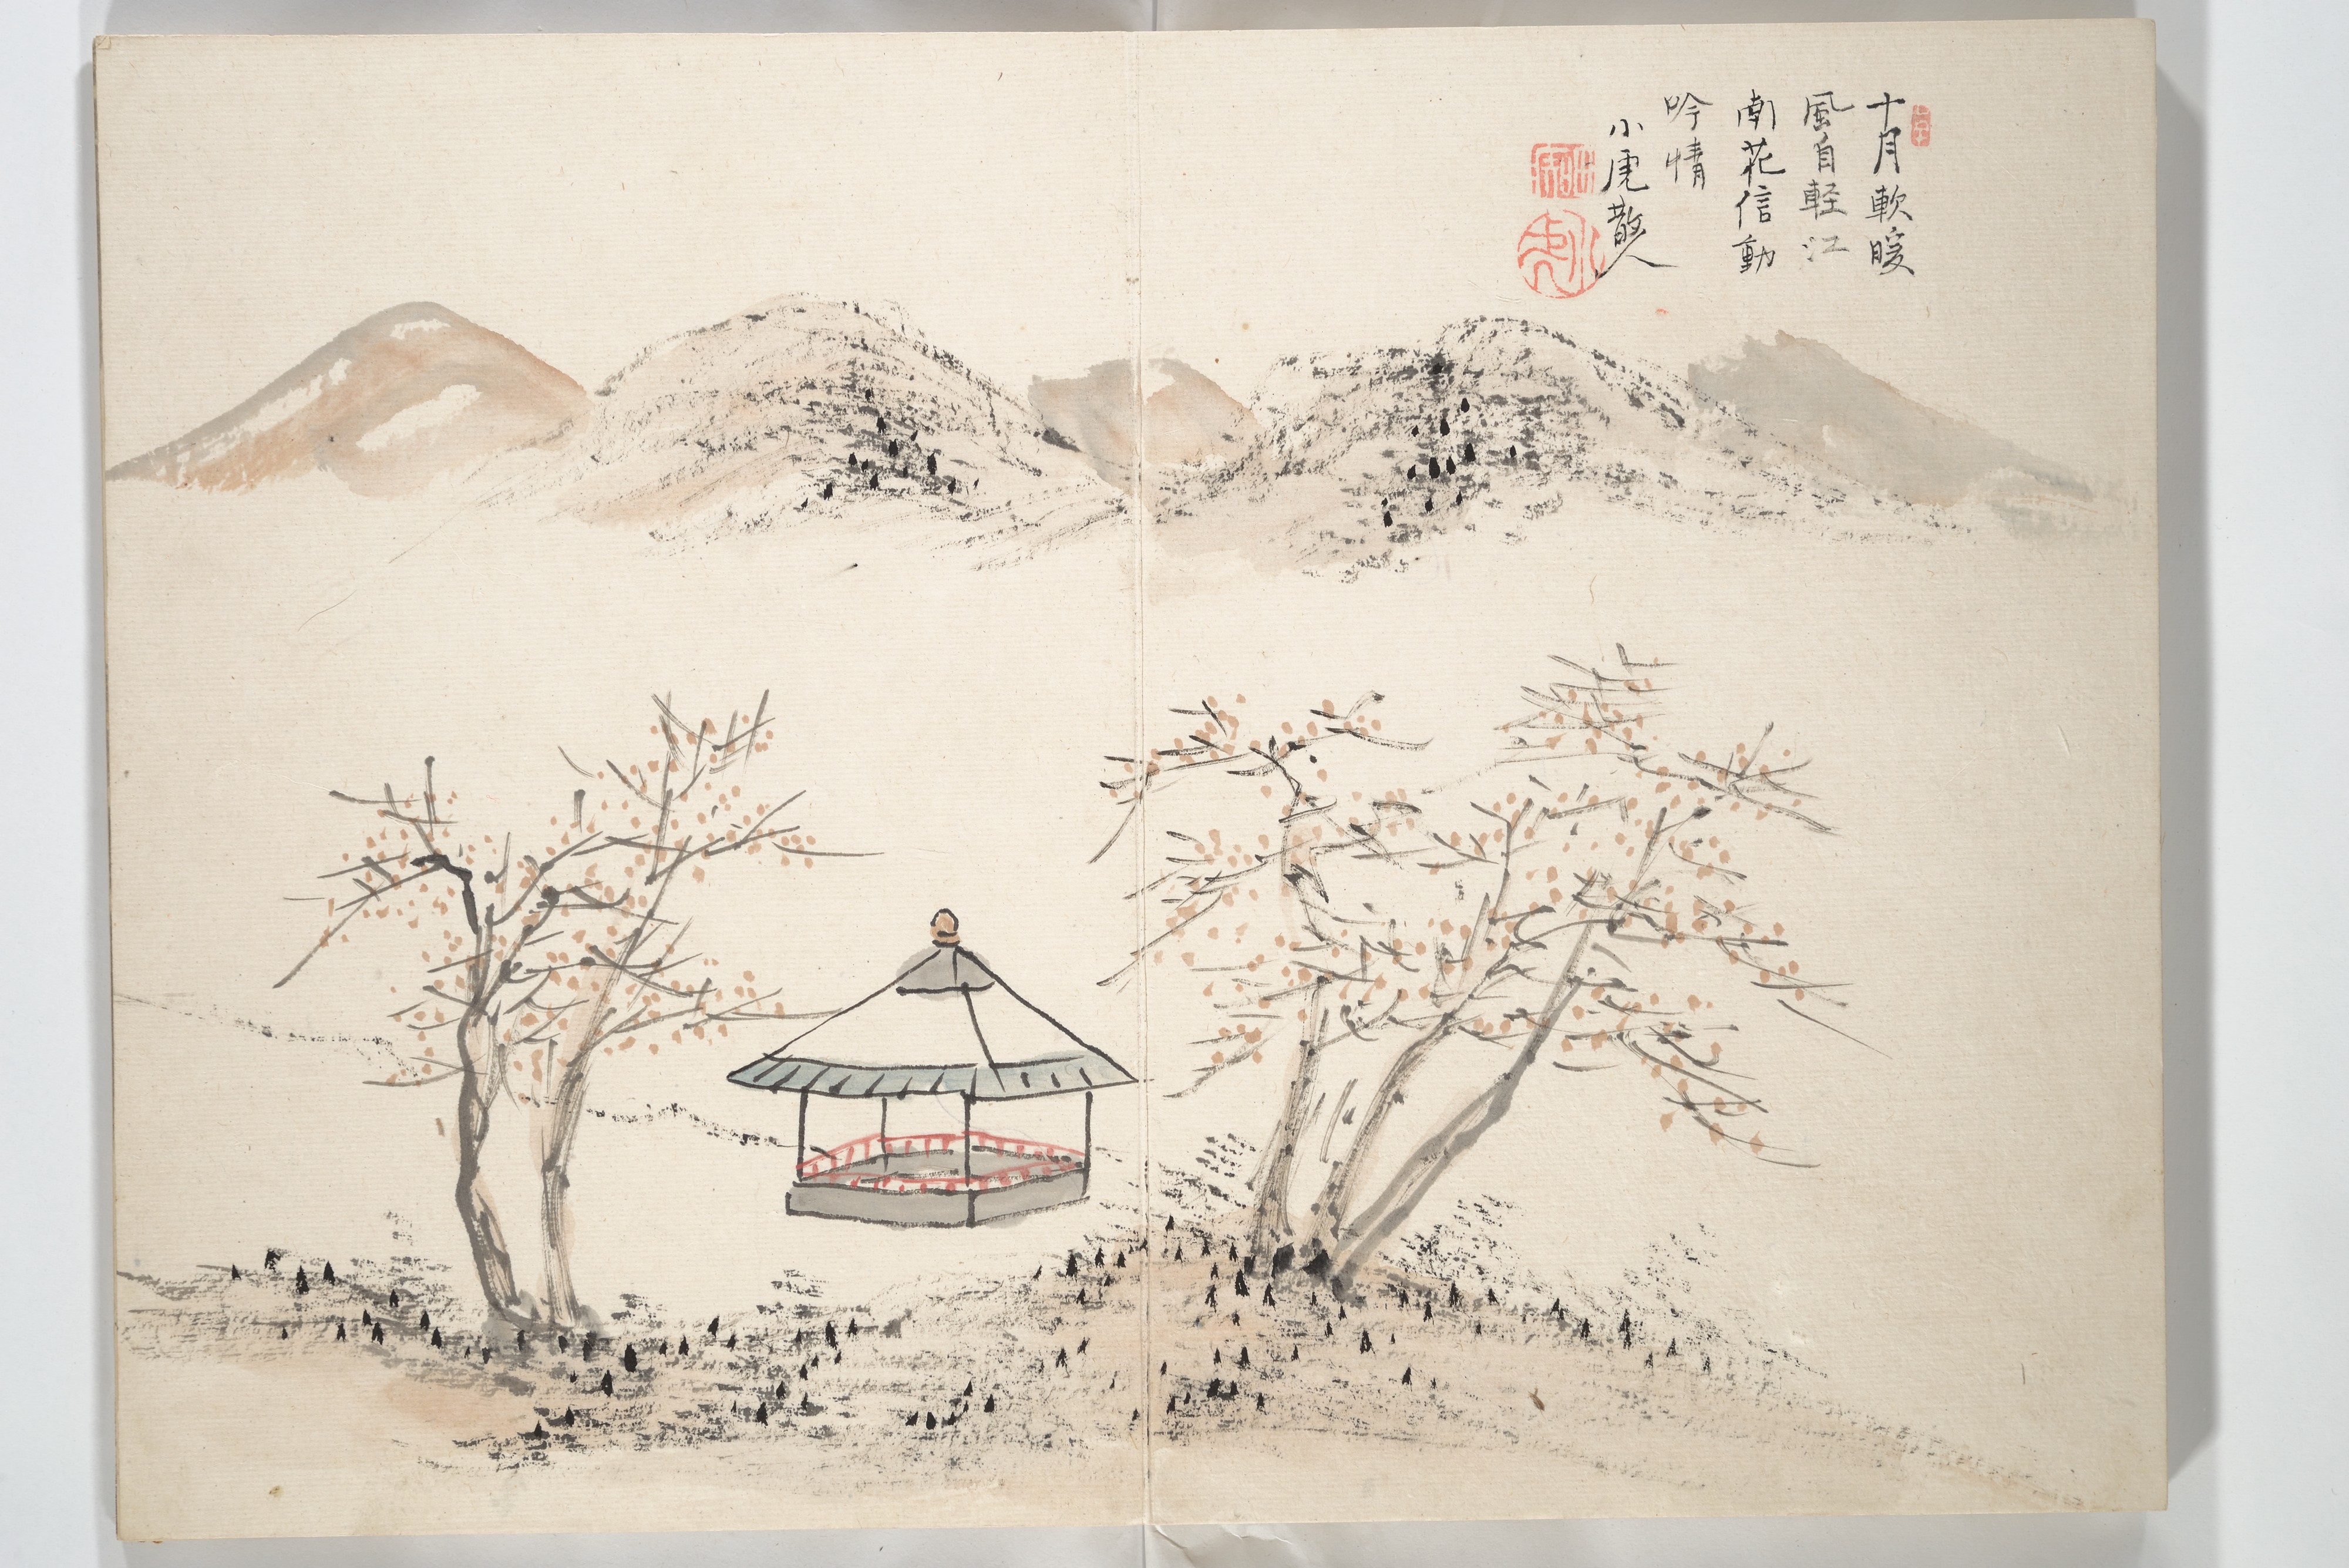 十月軟暖
風自軽江
南花信動
吟情
小虎散人